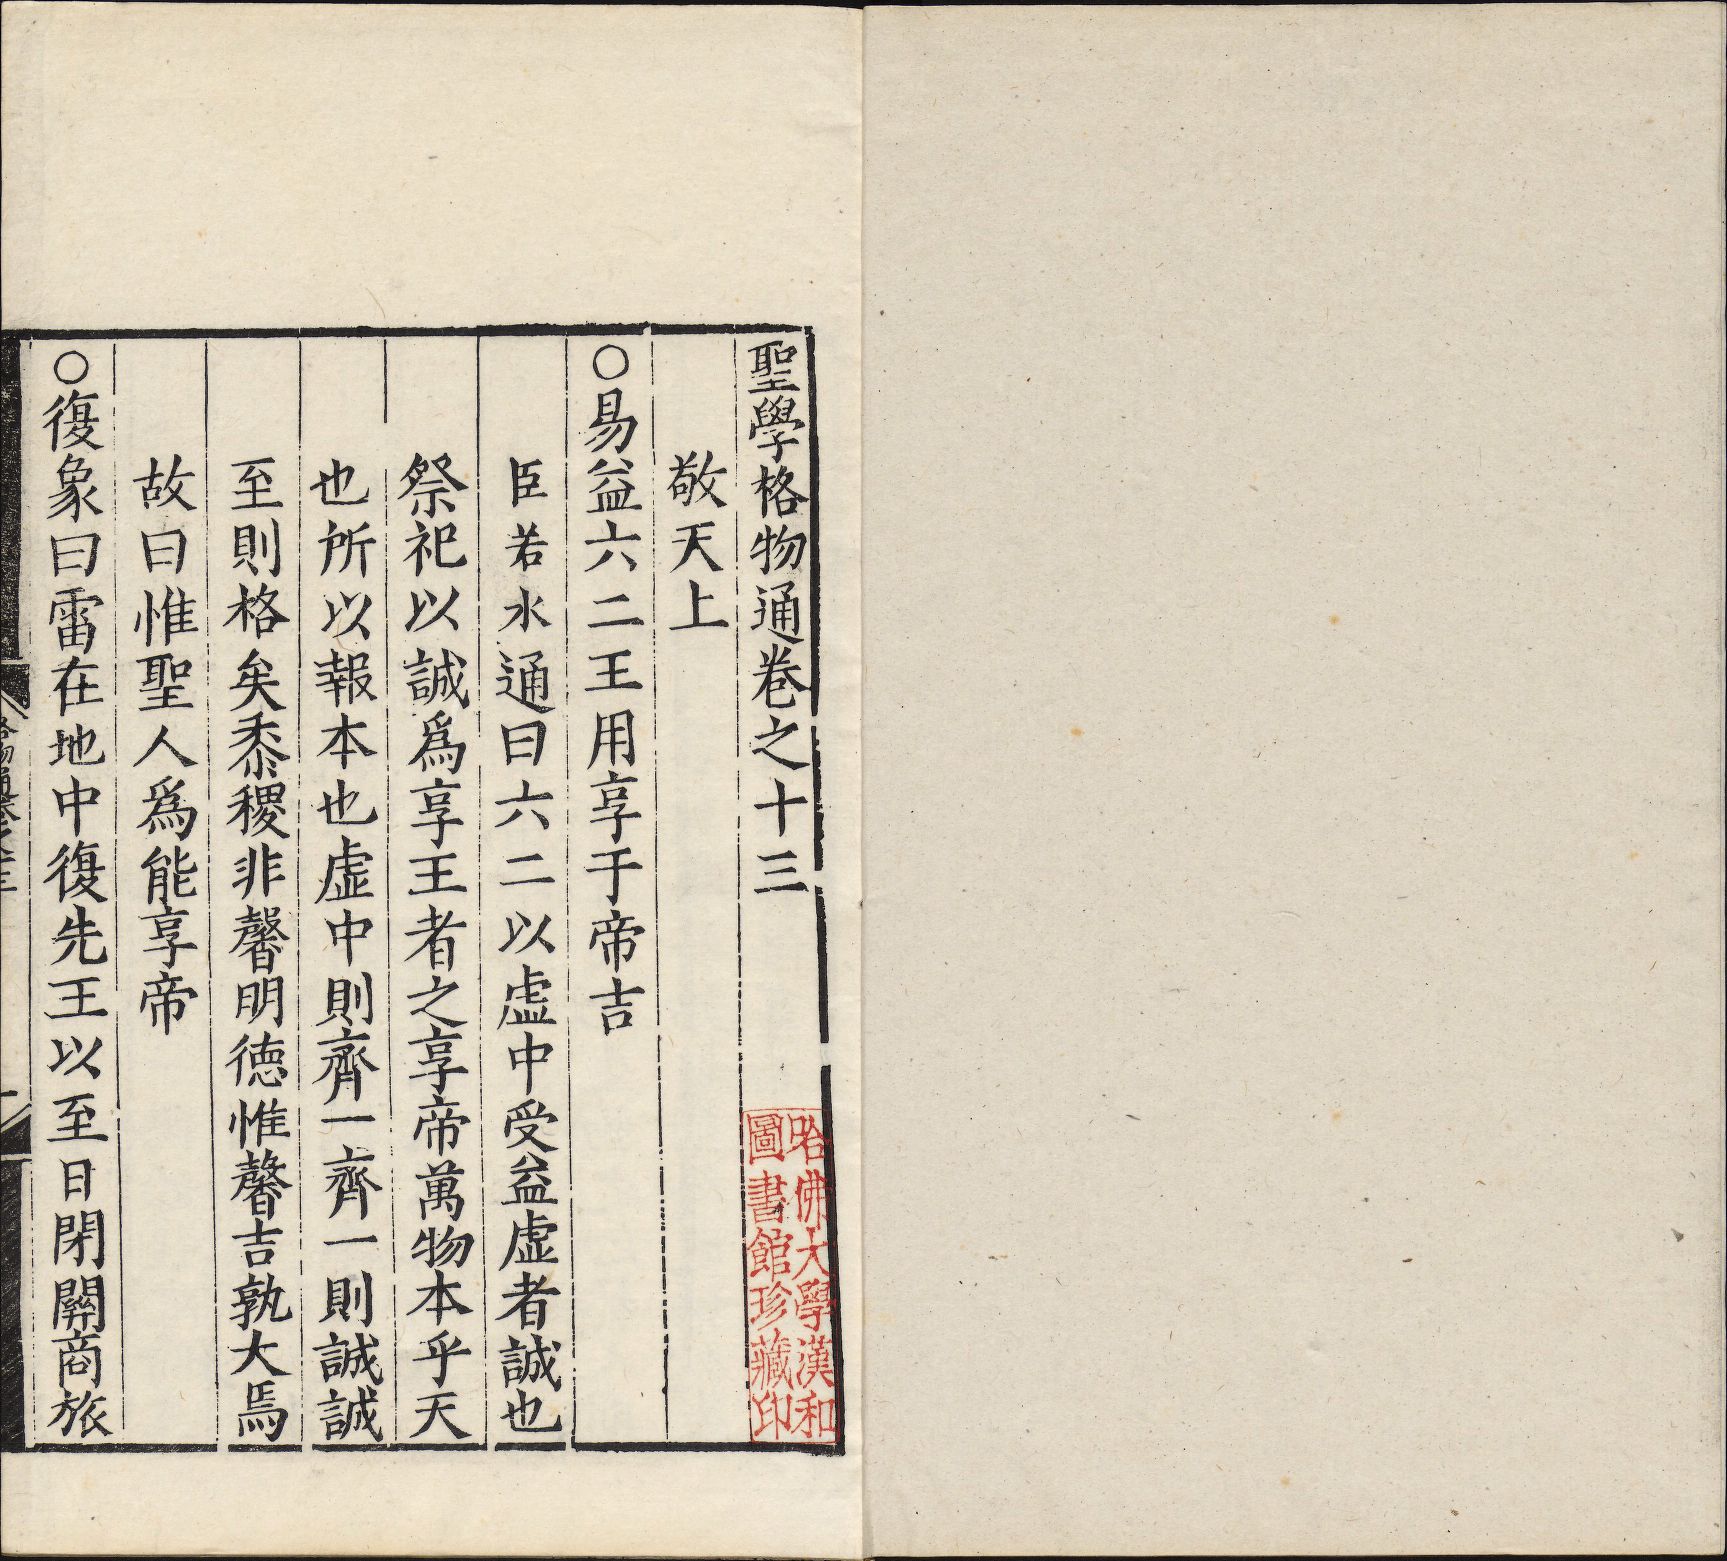 聖學格物通卷之十三
敬天上
○易益六二王用享于帝吉
臣若水通曰六二以虛中受益虛者誠也
祭祀以誠爲享王者之享帝萬物本乎天
也所以報本也虛中則齊一齊一則誠誠
至則格矣黍稷非馨明德惟馨吉孰大焉
故曰惟聖人爲能享帝
○復象曰雷在地中復先王以至日閉關商旅
哈佛大學漢和
圖書館珍藏印